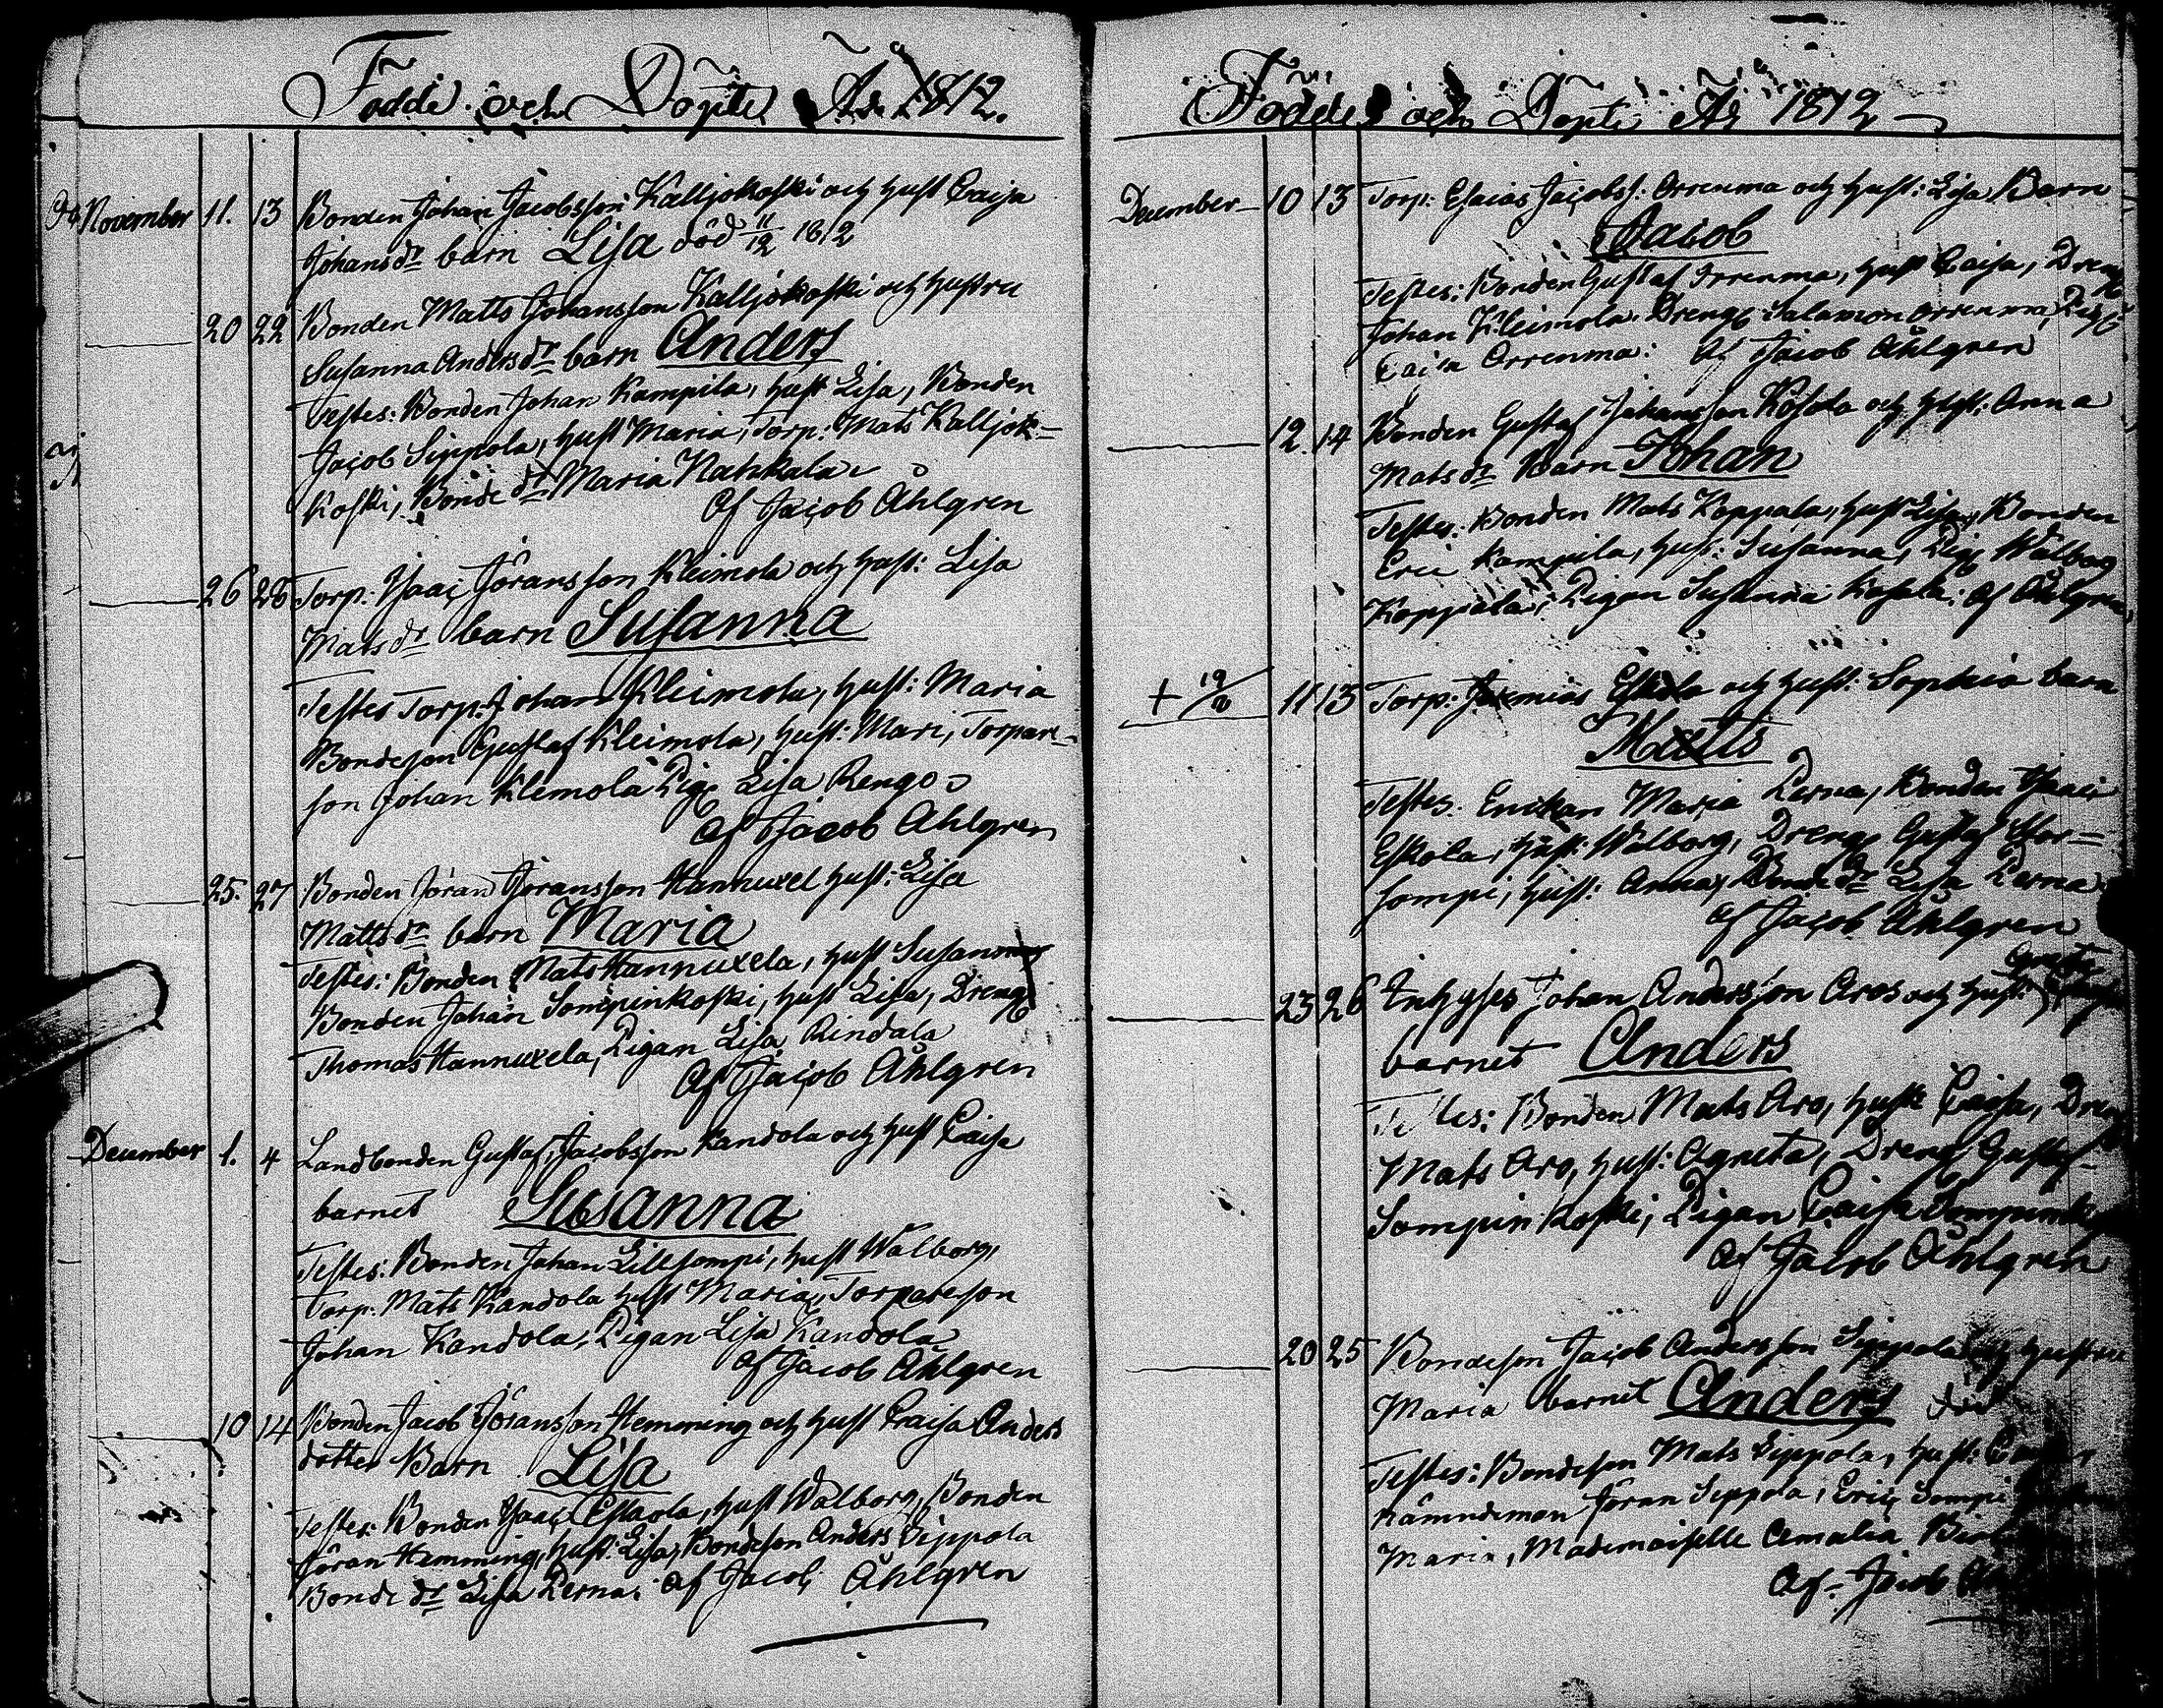 Födde och Döpte År 1812.
November 11. 13 Bonden Johan Jacobsson Kalljokoski och hust Caisa
Johans dr barn Lisa död 11/12 1812
20 22 Bonden Matts Johansson Kalljokoski och hustru
Susanna Anders dr barn Anders
Testes: Bonden Johan Kampila, hust Lisa, Bonden
Jacob Sippola, hust Maria, Torp: Mats Kalljok-
koski, Bonde dr Maria Nahkala
Af Jacob Åhlgren
26 28 Torp. Isaac Jöransson Kleimola och hust: Lisa
Mats dr barn Susanna
Testes Torp. Johan Kleimola, hust: Maria
Bondeson Gustaf Kleimola, hust: Mari, Torpare-
son Johan Klemola Pig Lisa Rengo
Af Jacob Åhlgren
25. 27 Bonden Jöran Jöransson Hannuxel hust: Lisa
Matts dr barn Maria
Testes: Bonden Mats Hannuxela, hust Susanna
Bonden Johan Sompinkoski, hust Lisa, Dreng
Thomas Hannuxela, Pigan Lisa Rindala
Af Jacob Åhlgren
December 1. 4 Landbonden Gustaf Jacobsson Kandola och hust Caisa
barnet Susanna
Testes: Bonden Johan Lillsompi, hust Walborg,
Torp. Mats Kandola hust Maria, Torpareson
Johan Kandola, Pigan Lisa Kandola
Af Jacob Åhlgren
10 14 Bonden Jacob Jöransson Hemming och hust Caisa Anders
dotter Barn Lisa
Testes: Bonden Isaac Eskola, hust Walborg, Bonden
Jöran Hemming, hust: Lisa, Bondeson Anders Sippola
Bonde dr Lisa Perna. Af Jacob Åhlgren
Födde och Döpte År 1812
December 10 13 Torp: Esaias Jacobs: Orrenma och hust: Lisa Barn
Jacob
Testes: Bonden Gustaf Orrenma, hust Caisa, Dreng
Johan Kleimola. Dreng Salamon Orrenma, Pig
Caisa Orrenma: Af Jacob Åhlgren
12. 14 Bonden Gustaf Johansson Kosola och hust: Anna
Mats dr Barn Johan
Testes: Bonden Mats Koppala, hust Lisa, Bonden
Eric Kampila, hust: Susanna, Pig Walborg
Koppala, Pigan Susanna Kosola: Af Åhlgren
+ 11 13 Torp: Jeremias Eskola och hust: Sophia barn
Matts
Testes: Enckan Maria Perna, Bonden Isaac
Eskola, hust: Walborg, Dreng Gustaf Stor-
sompi, hust: Anna, Bonde dr Lisa Perna
Af Jacob Åhlgren
23 26 Inhyses Johan Andersson Aros och hust:
barnet Anders
Testes: Bonden Mats Aro, hust Caisa, Dreng
Mats Aro, hust: Agneta, Dreng Gustaf
Sompin koski, Pigan Caisa
Af Jacob Åhlgren
20 25 Bondeson Jacob Andersson Sippola och hustru
Maria barnet Anders
Testes: Bondeson Mats Sippola, hust:
Nämndeman Jöran Seppola, Eric Sompi
Maria, Mademoiselle Amalia
Af Jacob